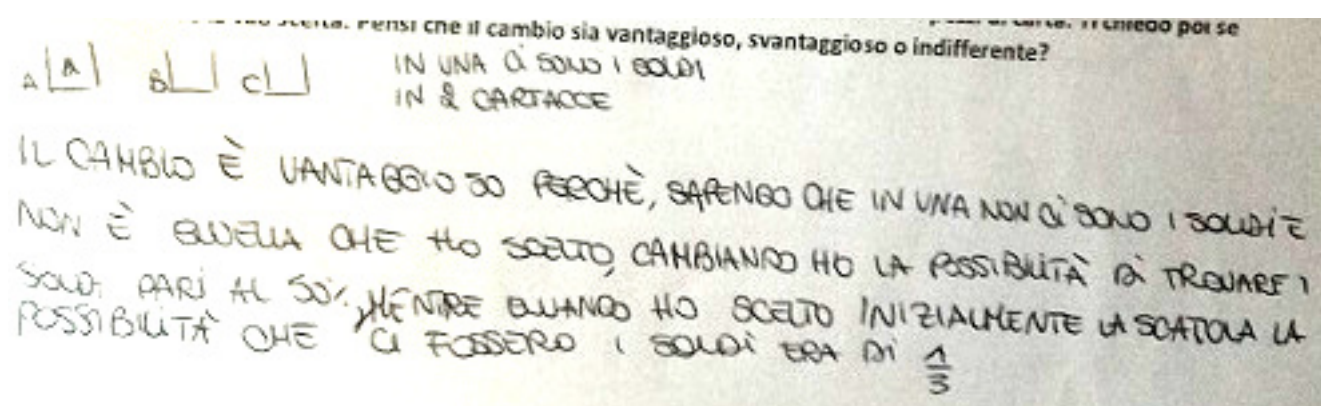 scelta. Pensi che il cambio sia vantaggioso, svantaggioso o indifferente? Ti chiedo poi se
A A B C IN UNA CI SONO I SOLDI
IN 2 CARTACCE
IL CAMBIO È VANTAGGIOSO PERCHÈ, SAPENDO CHE IN UNA NON CI SONO I SOLDI E
NON È QUELLA CHE HO SCELTO, CAMBIANDO HO LA POSSIBILITÀ DI TROVARE I
SOLDI PARI AL 50%, MENTRE QUANDO HO SCELTO INIZIALMENTE LA SCATOLA LA
POSSIBILITÀ CHE CI FOSSERO I SOLDI ERA DI 1/3